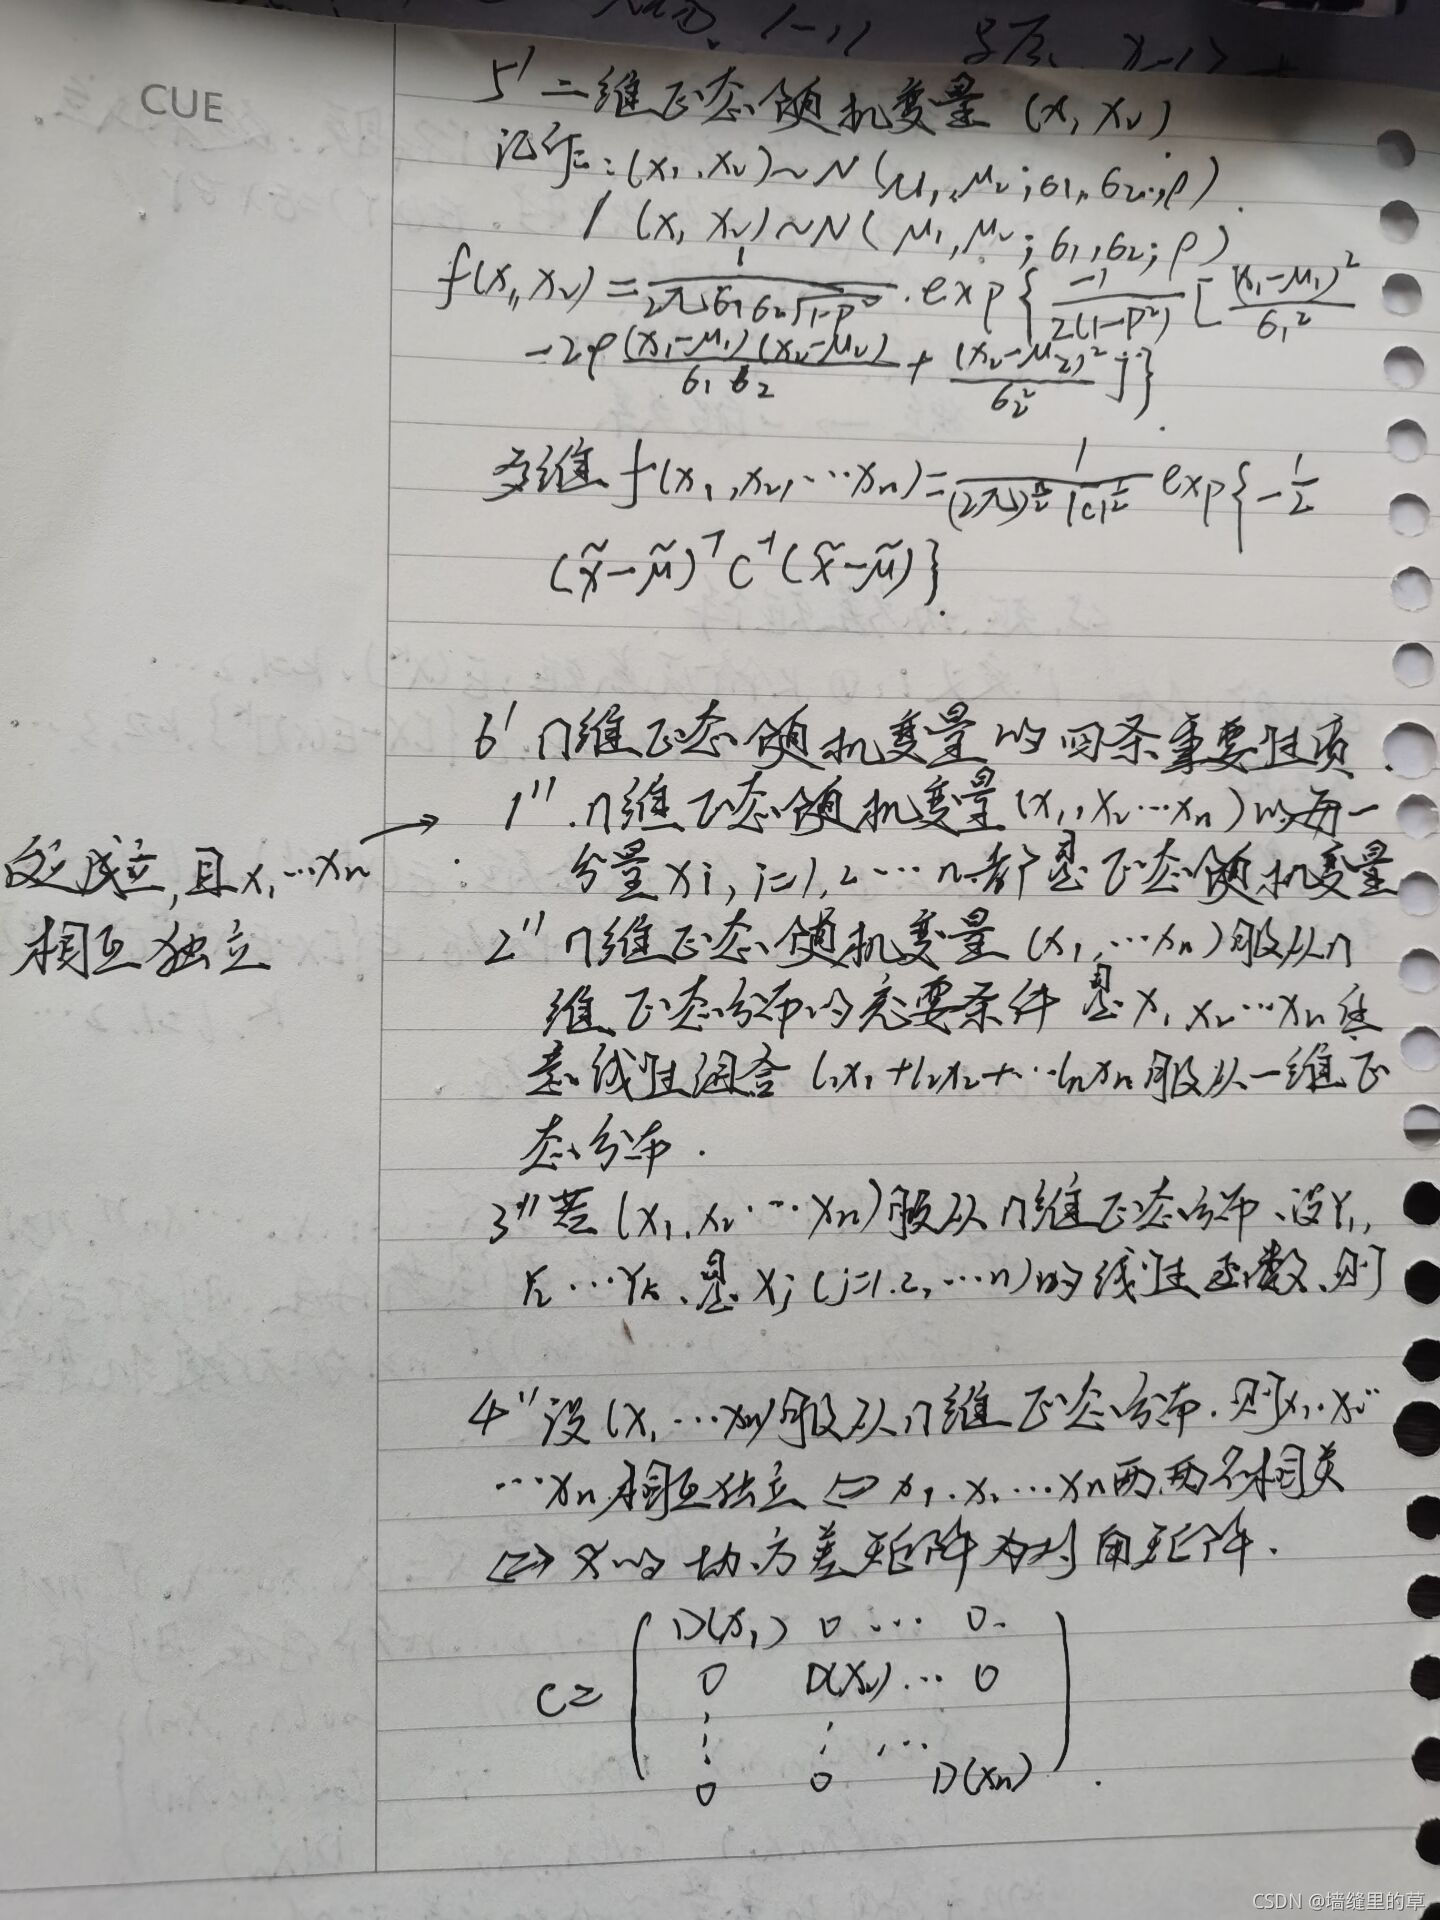 CUE
5' 二维正态随机变量 (x₁ x₂)
记作:(x₁,x₂)~N(μ₁,μ₂;σ₁,σ₂;ρ)
(x₁ x₂)~N(μ₁,μ₂;σ₁,σ₂;ρ)
f(x₁,x₂)=\frac{1}{2πσ₁σ₂\sqrt{1-ρ²}}·exp{\frac{-1}{2(1-ρ²)}[\frac{(x₁-μ₁)²}{σ₁²}
-2ρ\frac{(x₁-μ₁)(x₂-μ₂)}{σ₁σ₂}+\frac{(x₂-μ₂)²}{σ₂²}]}.
多维 f(x₁,x₂,…xₙ)=\frac{1}{(2π)^{\frac{n}{2}}|C|^{\frac{1}{2}}}exp{-\frac{1}{2}
(\tilde{x}-\tilde{μ})^T C^{-1}(\tilde{x}-\tilde{μ})}.
6' n维正态随机变量的四条重要性质
1''.n维正态随机变量(x₁,x₂…xₙ)的每一
分量xi,i=1,2…n都是正态随机变量
反之成立,且x₁…xₙ
相互独立
2'' n维正态随机变量(x₁,…xₙ)服从n
维正态分布的充要条件是x₁ x₂…xₙ任
意线性组合 l₁x₁+l₂x₂+…lₙxₙ服从一维正
态分布.
3''若(x₁,x₂…xₙ)服从n维正态分布、设Y₁,
Y₂…Yₖ、是xj(j=1.2,…n)的线性函数、则
4''设(x₁…xₙ)服从n维正态分布.则x₁.x₂
…xₙ相互独立⇔x₁.x₂…xₙ两两不相关
⇔x的协方差矩阵为对角矩阵.
D(x₁) 0 … 0
C= 0 D(x₂)… 0
⋮ ⋮ …
0 0 D(xₙ).
CSDN @墙缝里的草